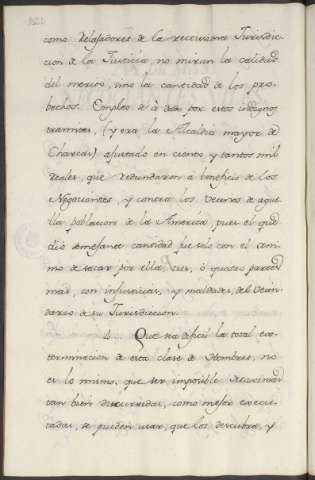 como relajadores de la necesaria Jurisdic-
ción de la Justicia, no miran la calidad
del merito, sino la cantidad de los pro-
bechos. Empleo de à dose por estos indignos
tramites, (y era la Alcaldia mayor de
Charcas) ajustado en ciento y tantos mil
reales, que redundaron a beneficio de los
Negociantes y contra los Vecinos de aque-
lla poblacion de la America, pues el que
dio semejante cantidad fue solo con el ani-
mo de sacar por ella, tres, ò quatro partes
mas, con injusticias, y maldades, del Vecin-
dario de su Jurisdiccion.
4. Que sea dificil la total ex-
terminacion de esta clase de Hombres, no
es lo mismo, que ser imposible
tan bien discurridas, como mejor execu-
tadas, se pueden usar, que los descubra, y